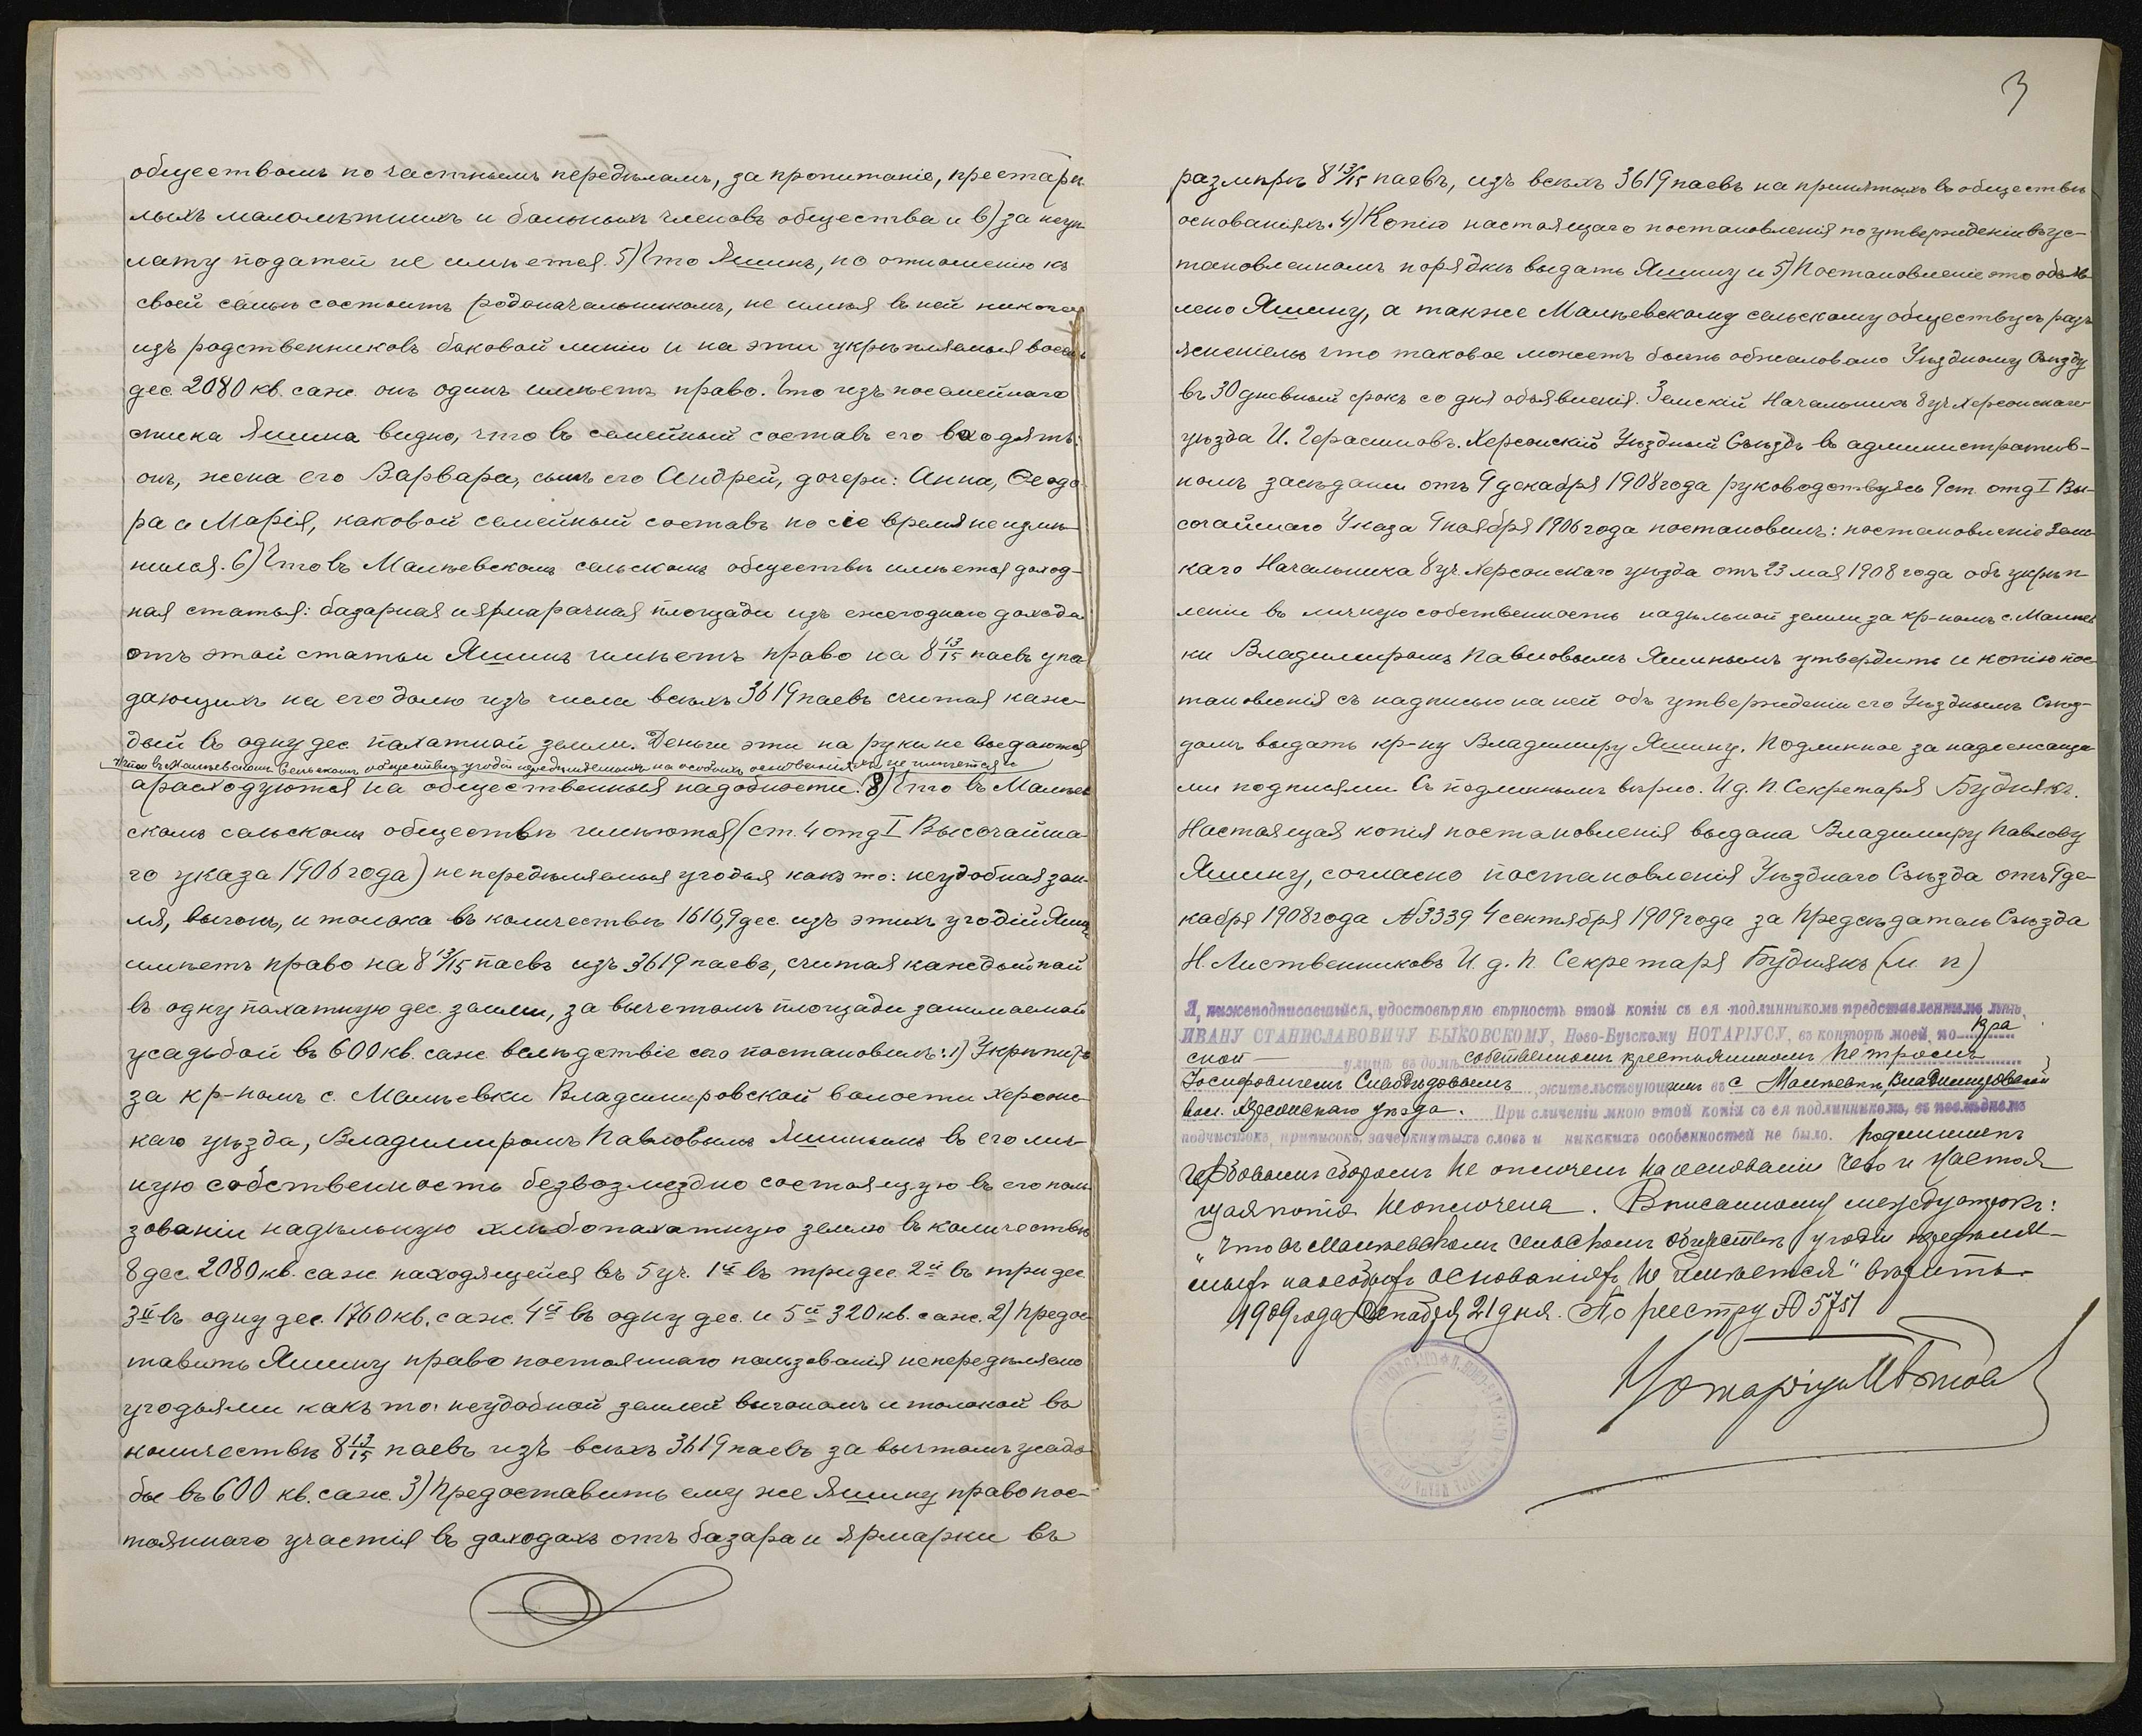 обществомъ по частнымъ передѣламъ, за пропитаніе, престарѣ-
лыхъ малолѣтнихъ и больныхъ членовъ общества и в) за неуп-
лату податей не имѣется. 5) Что Яшинъ, по отношенію къ
своей семьѣ состоитъ родоначальникомъ, не имѣя въ ней никого
изъ родственниковъ боковой линіи и на эти укрѣпляемыя восемь
дес. 2080 кв. саж. онъ одинъ имѣетъ право. Что изъ посемейнаго
списка Яшина видно, что въ семейный составъ его входятъ:
онъ, жена его Варвара, сынъ его Андрей, дочери: Анна, Ѳеодо-
ра и Марія, каковой семейный составъ по сіе время не измѣ-
нился. 6) Что въ Малѣевскомъ сельскомъ обществѣ имѣется доход-
ная статья: базарная и ярмарачная площади изъ ежегоднаго дохода
отъ этой статьи Яшинъ имѣетъ право на 8 13/15 паевъ упа-
дающихъ на его долю изъ числа всѣхъ 3619 паевъ считая каж-
дый въ одну дес. пахатной земли. Деньги эти на руки не выдаются
что въ Малѣевскомъ Сельскомъ обществѣ угодій передѣляемыхъ на особыхъ основаніяхъ не имѣется
а расходуются на общественныя надобности. 8) Что въ Малѣев
скомъ сельскомъ обществѣ имѣются (ст. 4 отд I Высочайша-
го указа 1906 года) непередѣляемыя угодья какъ то: неудобная зем-
ля, выгонъ, и толока въ количествѣ 1616,9 дес. изъ этихъ угодій Яшинъ
имѣетъ право на 8 13/15 паевъ изъ 3619 паевъ, считая каждый пай
въ одну пахатную дес. земли, за вычетомъ площади занимаемой
усадьбой въ 600 кв. саж. вслѣдствіе сего постановилъ: 1) Укрѣпить
за кр-номъ с. Малѣевки Владимировской волости Херсонс-
каго уѣзда, Владимиромъ Павловымъ Яшинымъ въ его лич-
ную собственность безвозмездно состоящую въ его поль-
зованіи надѣльную хлѣбопахатную землю въ количествѣ
8 дес. 2080 кв. саж. находящейся въ 5 уч. 1й въ три дес. 2й въ три дес.
3й въ одну дес. 1760 кв. саж. 4й въ одну дес. и 5й 320 кв. саж. 2) Предос-
тавить Яшину право постояннаго пользованія непередѣляемо
угодьями какъ то: неудобной землей выгономъ и толокой во
количествѣ 8 13/15 паевъ изъ всѣхъ 3619 паевъ за вычтомъ усадь-
бы въ 600 кв. саж. 3) Предоставить ему же Яшину право пос-
тояннаго участія въ доходахъ отъ базара и ярмарки въ
3
размѣрѣ 8 13/15 паевъ, изъ всѣхъ 3619 паевъ на принятыхъ въ обществѣ
основаніяхъ. 4) Копію настоящаго постановленія по утвержденіи въ ус-
тановленномъ порядкѣ выдать Яшину и 5) Постановленіе это объяв-
лено Яшину, а также Малѣевскому сельскому обществу съ разъ
ясненіемъ что таковое можетъ быть обжаловано Уѣздному Съѣзду
въ 30 дневный срокъ со дня объявленія. Земскій Начальникъ 8 уч. Херсонскаго
уѣзда И. Герасимовъ. Херсонскій Уѣздный Съѣздъ въ административ-
номъ засѣданіи отъ 9 декабря 1908 года руководствуясь 9 ст. отд I Вы-
сочайшаго Указа 9 ноября 1906 года постановилъ: постановленіе Земс-
каго Начальника 8 уч. Херсонскаго уѣзда отъ 23 мая 1908 года объ укрѣп-
леніи въ личную собственность надѣльной земли за кр-номъ с. Малѣев
ки Владимиромъ Павловымъ Яшинымъ утвердить и копію пос-
тановленія съ надписью на ней объ утвержденіи его Уѣзднымъ Съѣз-
домъ выдать кр-ну Владимиру Яшину. Подлинное за надлежащи-
ми подписями. Съ подлиннымъ вѣрно. И. д. П. Секретаря Буднякъ.
Настоящая копія постановленія выдана Владимиру Павлову
Яшину, согласно постановленія Уѣзднаго Съѣзда отъ 9 де-
кабря 1908 года №3339 4 сентября 1909 года за Предсѣдатель Съѣзда
Н. Лиственниковъ И. д. П. Секретаря Буднякъ (м. п)
Я, нижеподписавшійся, удостовѣряю вѣрность этой копіи съ ея подлинникомъ представленнымъ мнѣ,
ИВАНУ СТАНИСЛАВОВИЧУ БЫКОВСКОМУ, Ново-Бугскому НОТАРІУСУ, въ конторѣ моей, по
ской улицѣ въ домѣ собственномъ крестьяниномъ Петромъ
Іосифовичемъ жительствующимъ въ с Малѣевкѣ, Владимировской
вол. Херсонскаго уѣзда. При сличеніи мною этой копіи съ ея подлинникомъ, въ послѣднемъ
подчистокъ, приписокъ, зачеркнутыхъ словъ и никакихъ особенностей не было. Подлинникъ
гербовымъ сборомъ не оплоченъ на основаніи чего и настоя
щая копія неоплочена. Вписанному между строкъ:
"что въ Малѣевскомъ сельскомъ обществѣ угодій передѣляе-
мыхъ на особыхъ основаніяхъ не имѣется" вѣрить.
1909 года Декабря 21 дня. По реестру № 5751
Нотаріусъ